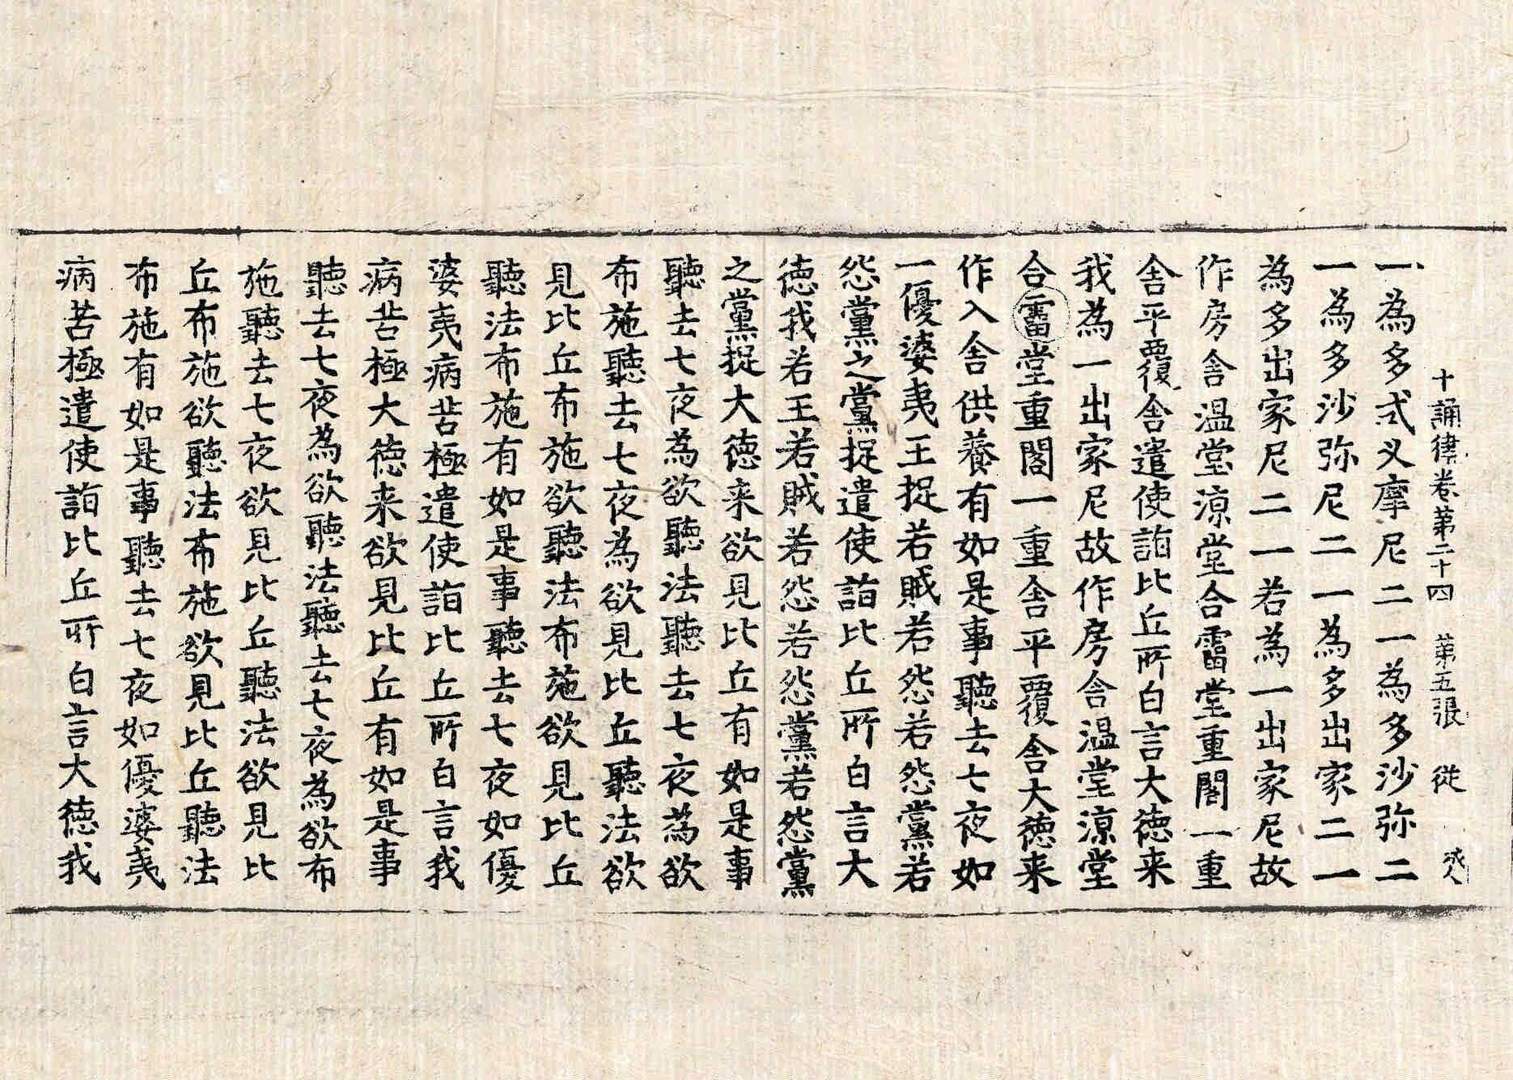 十誦律卷第二十四 第五張 從
一為多式叉摩尼二一為多沙弥二
一為多沙弥尼二一為多出家二一
為多出家尼二一若為一出家尼故
作房舍温堂凉堂合霤堂重閣一重
舍平覆舍遣使詣比丘所白言大徳来
我為一出家尼故作房舍温堂凉堂
合霤堂重閣一重舍平覆舍大徳来
作入舍供養有如是事聽去七夜如
一優婆夷王捉若賊若怨若怨黨若
怨黨之黨捉遣使詣比丘所白言大
徳我若王若賊若怨若怨黨若怨黨
之黨捉大徳来欲見比丘有如是事
聽去七夜為欲聽法聽去七夜為欲
布施聽去七夜為欲見比丘聽法欲
見比丘布施欲聽法布施欲見比丘
聽法布施有如是事聽去七夜如優
婆夷病苦極遣使詣比丘所白言我
病苦極大徳来欲見比丘有如是事
聽去七夜為欲聽法聽去七夜為欲布
施聽去七夜欲見比丘聽法欲見比
丘布施欲聽法布施欲見比丘聽法
布施有如是事聽去七夜如優婆夷
病苦極遣使詣比丘所白言大徳我